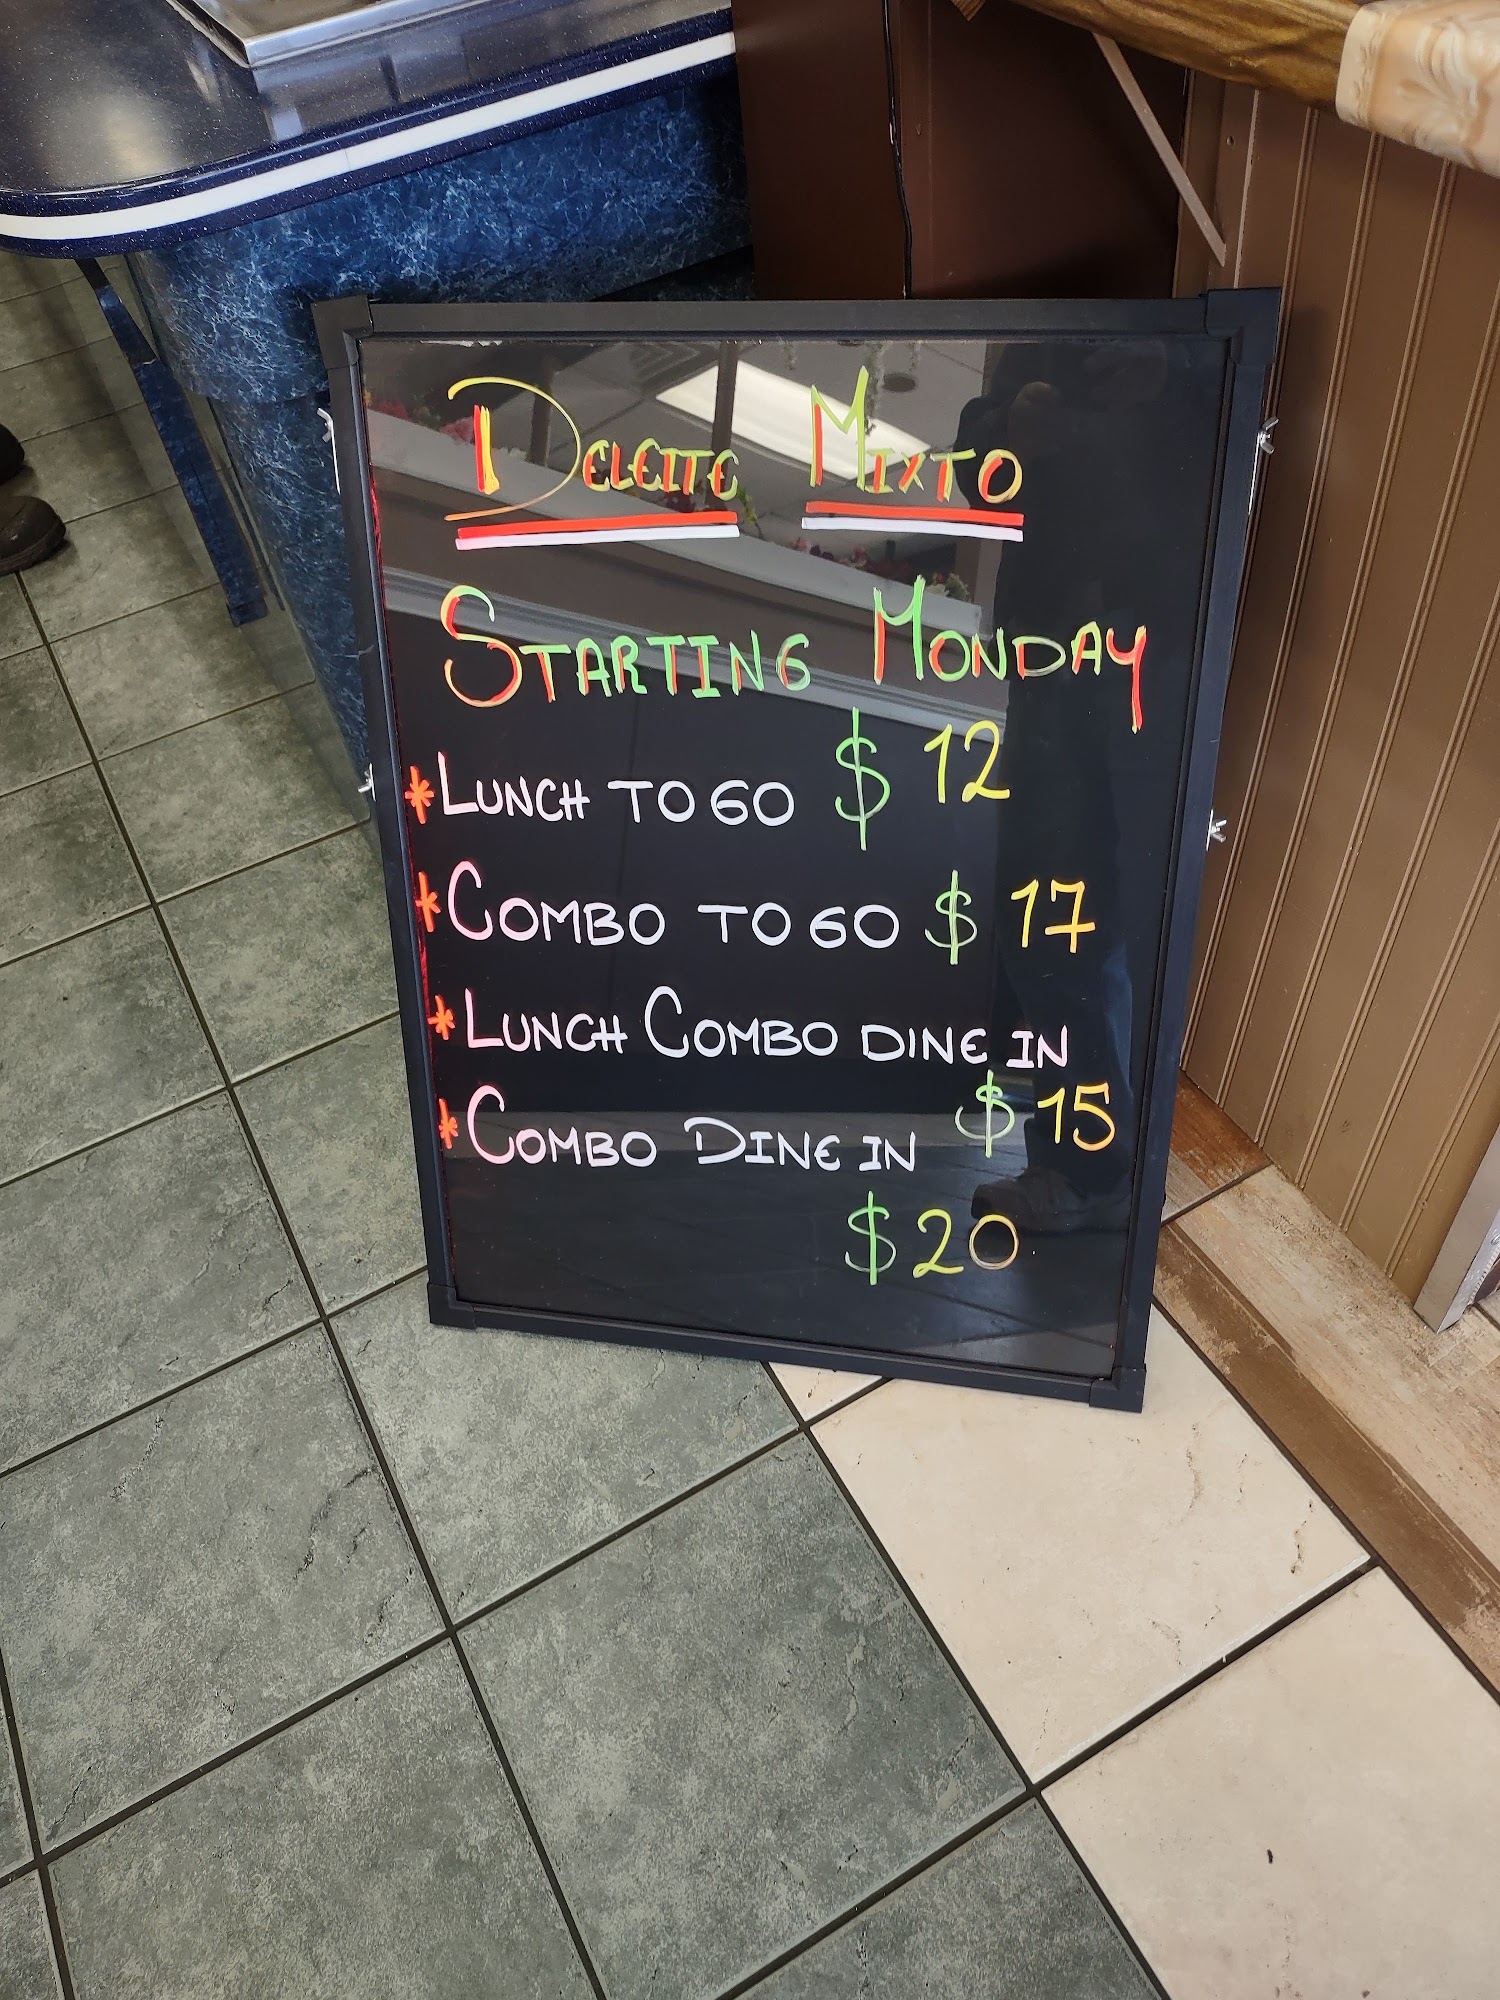 DELEITE MIXTO
STARTING MONDAY
*LUNCH TO GO $ 12
*COMBO TO GO $ 17
*LUNCH COMBO DINE IN
$ 15
*COMBO DINE IN
$ 20